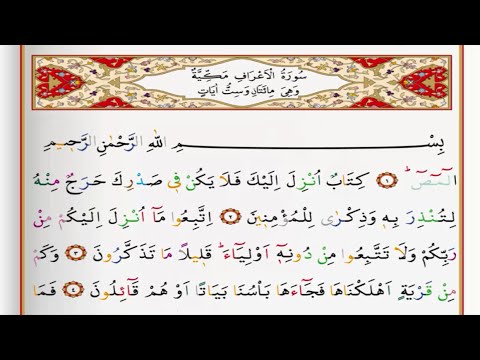 سُورَةُ الْاَعْرَافِ مَكِّيَّةٌ
وَهِيَ مِائَتَانِ وَسِتُّ اٰيَاتٍ
بِسْمِ اللّٰهِ الرَّحْمٰنِ الرَّحٖيمِ
الٓمٓصٓ ۚ ﴿١﴾ كِتَابٌ اُنْزِلَ اِلَيْكَ فَلَا يَكُنْ فٖي صَدْرِكَ حَرَجٌ مِنْهُ
لِتُنْذِرَ بِهٖ وَذِكْرٰى لِلْمُؤْمِنٖينَ ﴿٢﴾ اِتَّبِعُوا مَٓا اُنْزِلَ اِلَيْكُمْ مِنْ
رَبِّكُمْ وَلَا تَتَّبِعُوا مِنْ دُونِهٖٓ اَوْلِيَٓاءَ ؕ قَلٖيلًا مَا تَذَكَّرُونَ ﴿٣﴾ وَكَمْ
مِنْ قَرْيَةٍ اَهْلَكْنَاهَا فَجَٓاءَهَا بَاْسُنَا بَيَاتًا اَوْ هُمْ قَٓائِلُونَ ﴿٤﴾ فَمَا